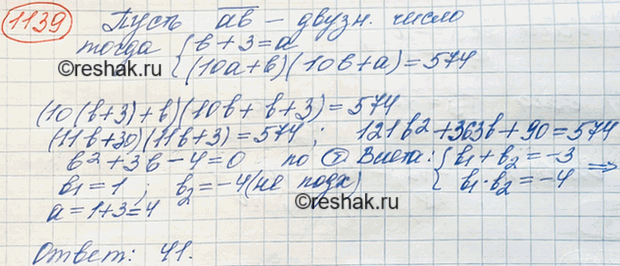 1139 Пусть ab – двузн. число
тогда { b + 3 = a
(10a + b)(10b + a) = 574
©reshak.ru
(10(b+3)+b)(10b+b+3) = 574
(11b+30)(11b+3) = 574 ; 121b² + 363b + 90 = 574
b² + 3b – 4 = 0 по т Виета: { b₁ + b₂ = –3
b₁ · b₂ = –4 ⇒
b₁ = 1 ; b₂ = –4 (не подх)
©reshak.ru
a = 1+3 = 4
Ответ: 41.